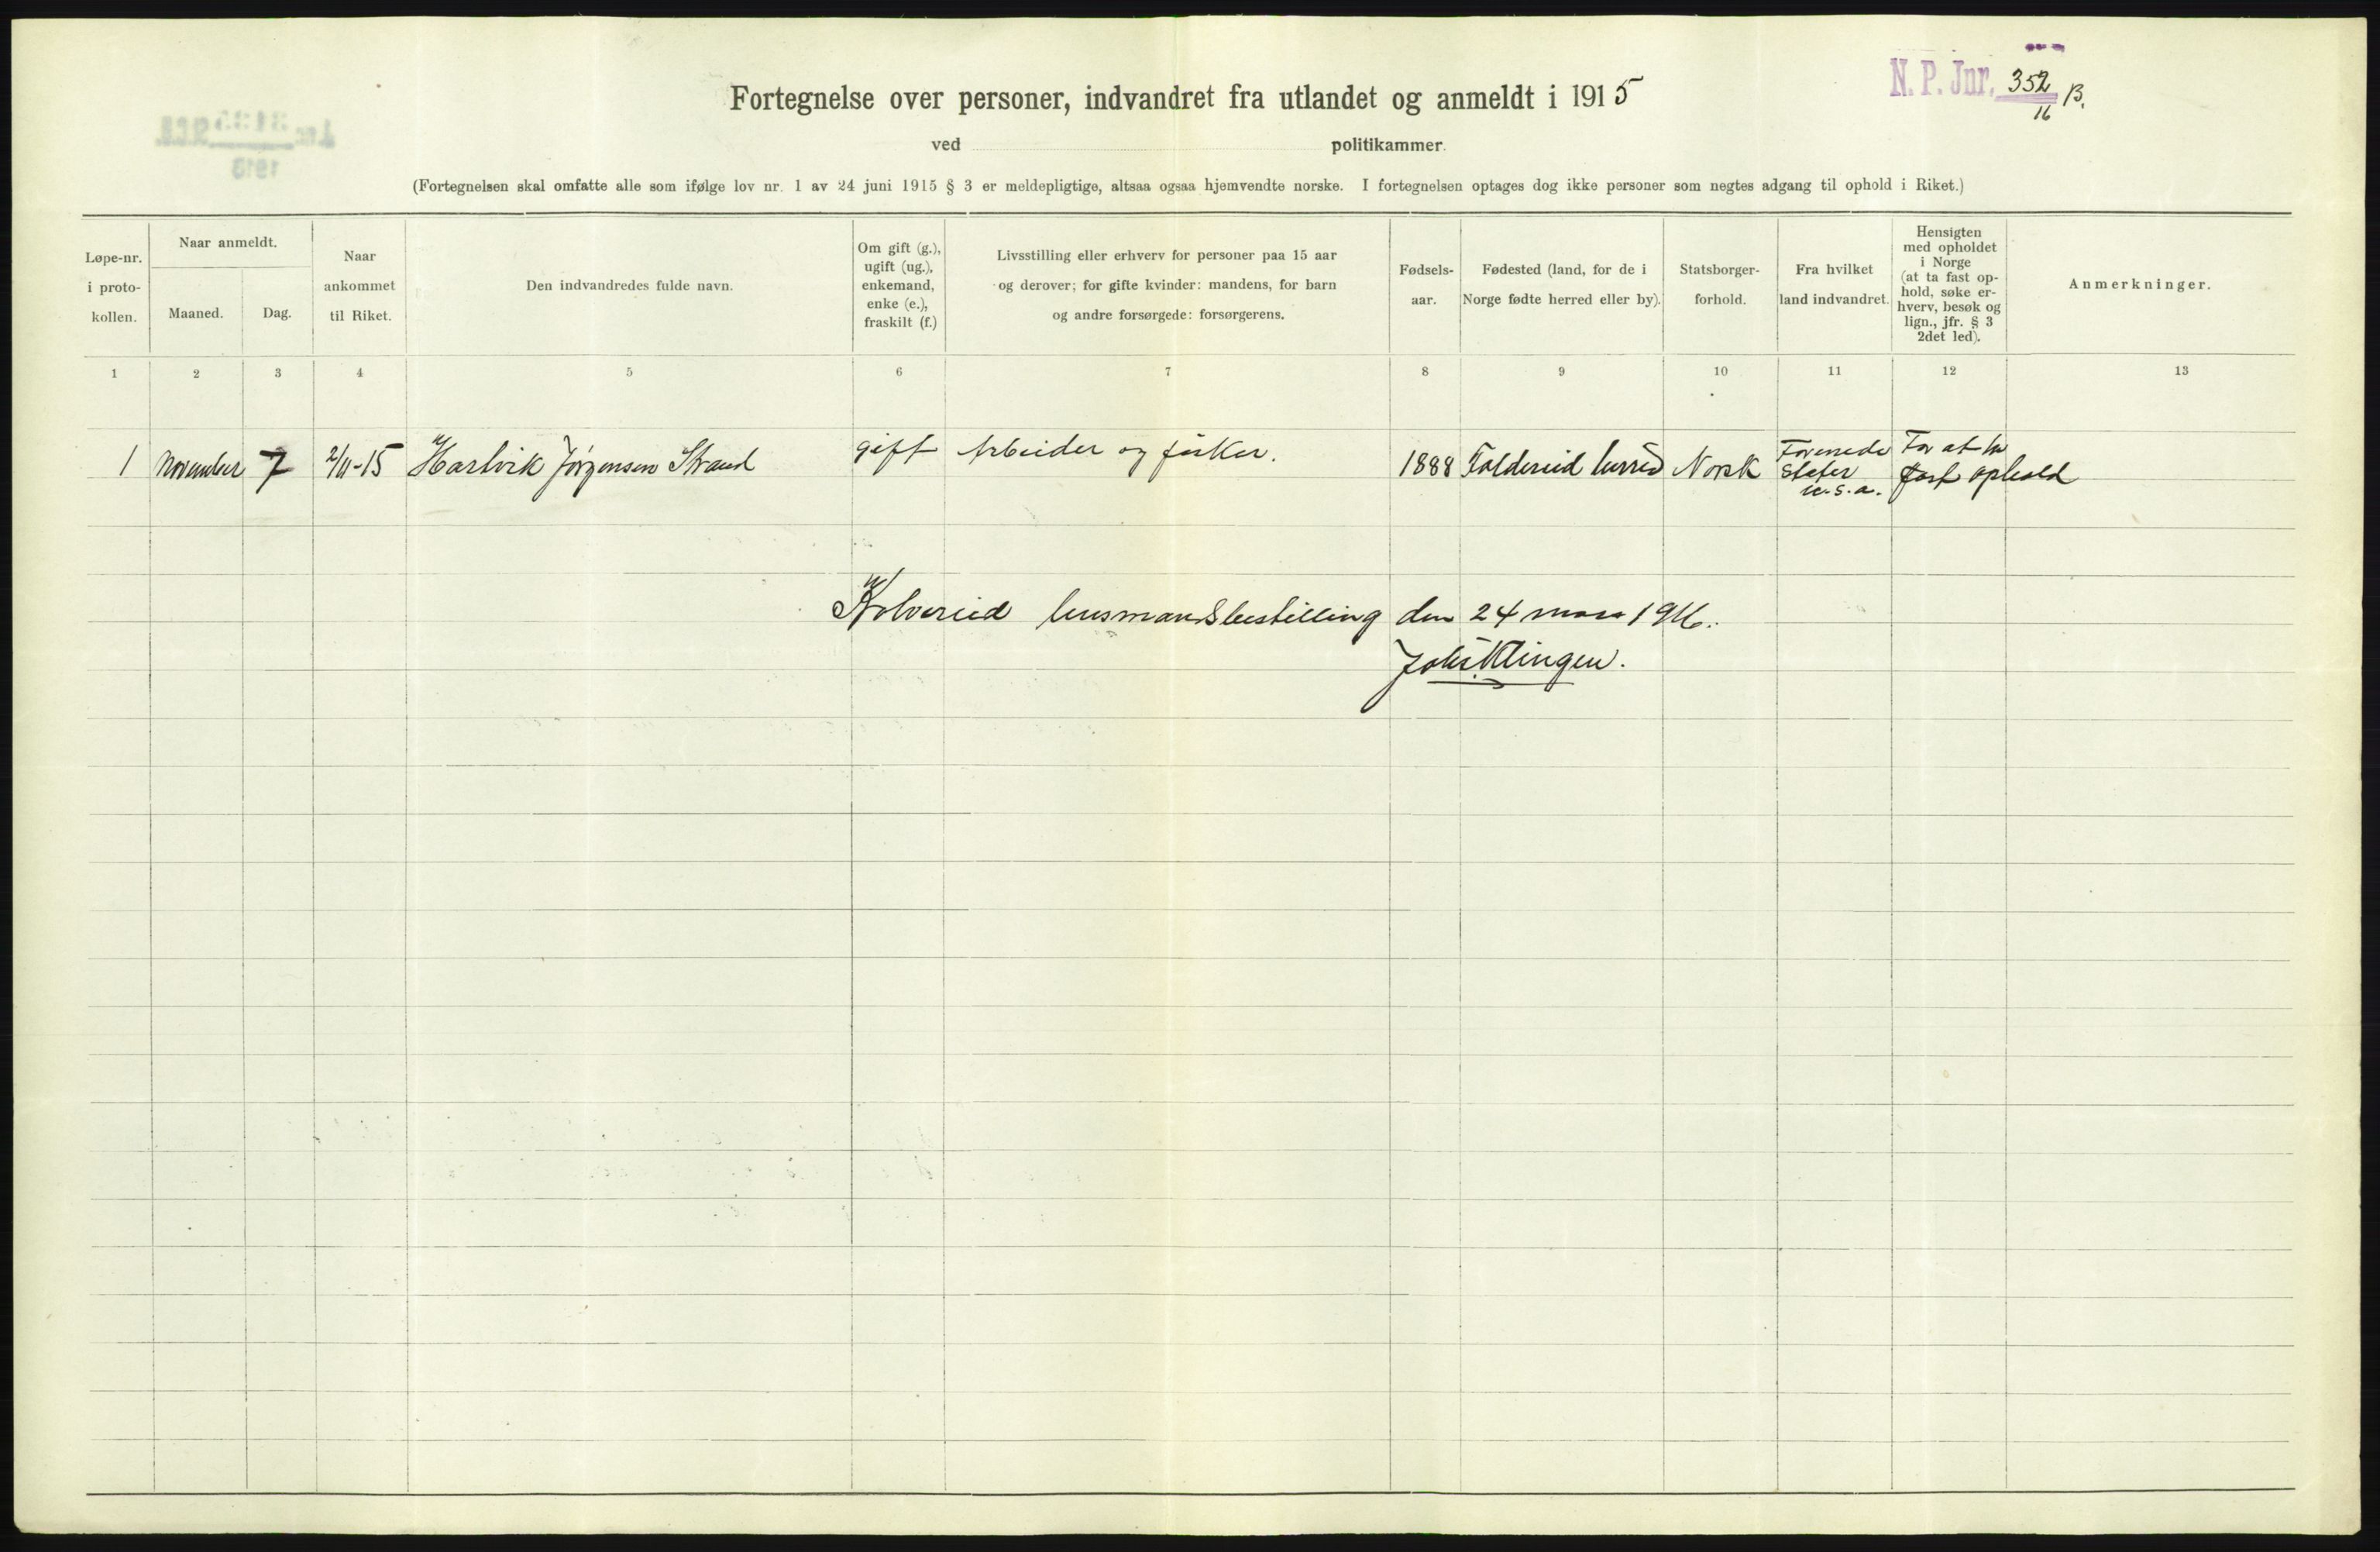 N. P. Jnr. 352/16 B.
Fortegnelse over personer, indvandret fra utlandet og anmeldt i 1915
ved politikammer.
(Fortegnelsen skal omfatte alle som ifølge lov nr. 1 av 24 juni 1915 § 3 er meldepligtige, altsaa ogsaa hjemvendte norske. I fortegnelsen optages dog ikke personer som negtes adgang til ophold i Riket.)
Løpe-nr.
i proto-
kollen.
Naar anmeldt.
Maaned.
Dag.
Naar
ankommet
til Riket.
Den indvandredes fulde navn.
Om gift (g.),
ugift (ug.),
enkemand,
enke (e.),
fraskilt (f.)
Livsstilling eller erhverv for personer paa 15 aar
og derover; for gifte kvinder: mandens, for barn
og andre forsørgede: forsørgerens.
Fødsels-
aar.
Fødested (land, for de i
Norge fødte herred eller by).
Statsborger-
forhold.
Fra hvilket
land indvandret.
Hensigten
med opholdet
i Norge
(at ta fast op-
hold, søke er-
hverv, besøk og
lign., jfr. § 3
2det led).
Anmerkninger.
1 2 3 4 5 6 7 8 9 10 11 12 13
1 November 7 2/11-15 Hartvik Jørgensen Strand gift Arbeider og fisker. 1888 Foldereid herred Norsk
Forenede
Stater
u.s.a.
For at ta
fast ophold
Kolvereid lensmandsbestilling den 24 mars 1916.
Johs. Klingen.